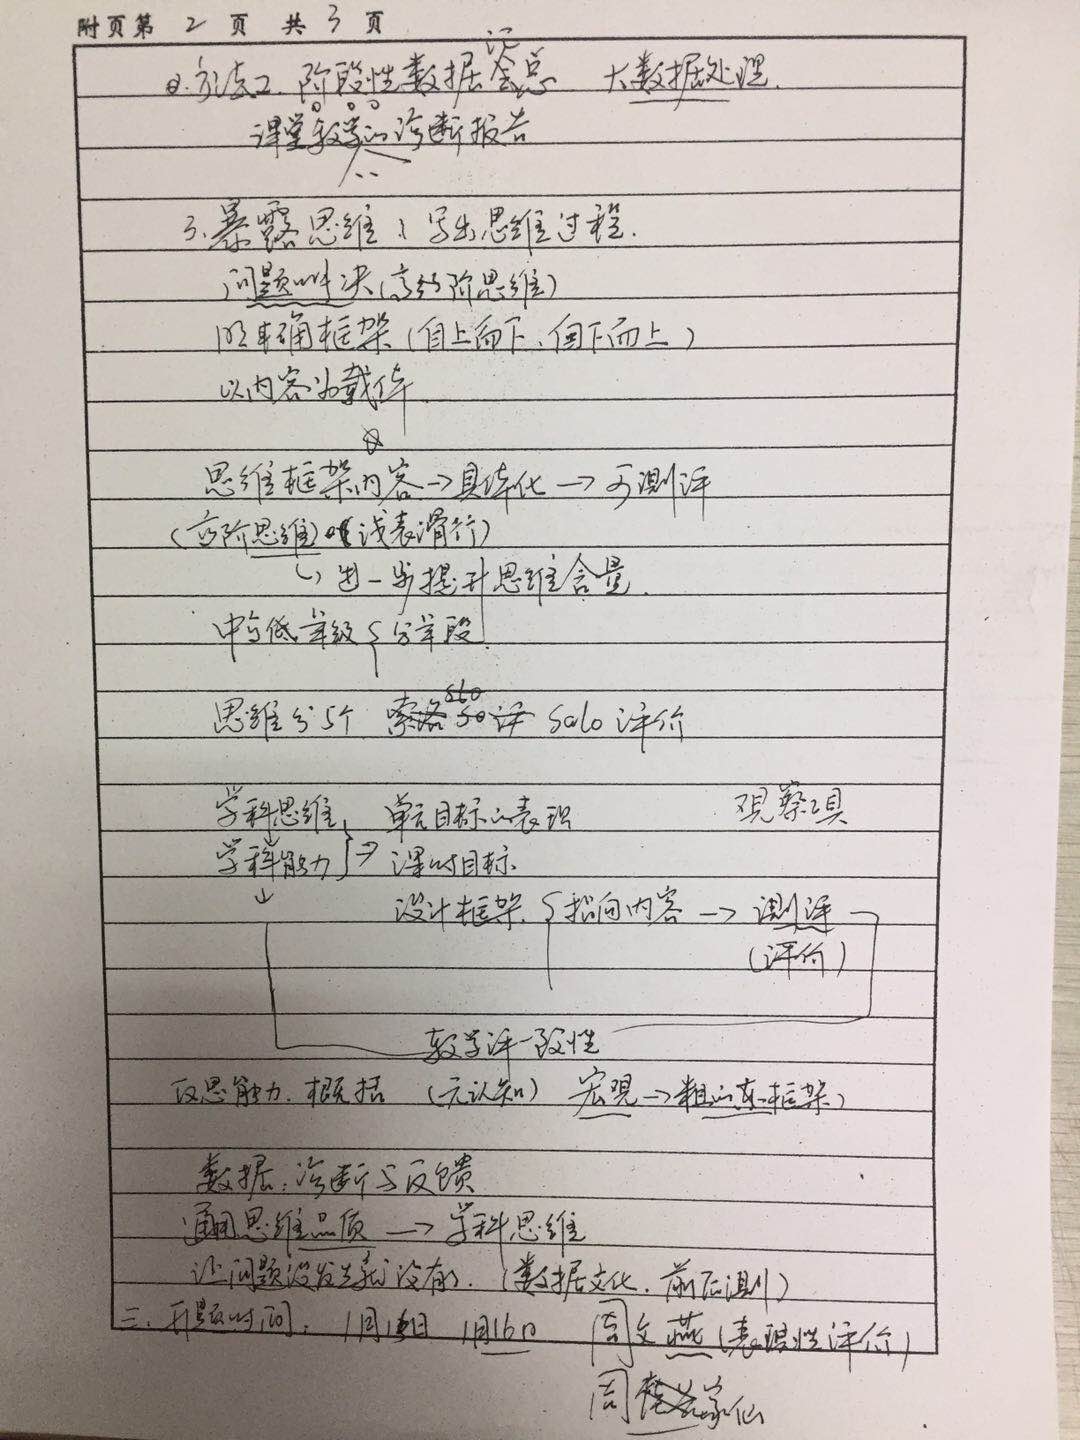 附页第 2 页 共 3 页
方法2. 阶段性数据汇总 大数据处理.
课堂教学的诊断报告
3. 暴露思维 写出思维过程.
问题解决(高阶思维)
明确框架(自上而下、自下而上)
以内容为载体
思维框架内容→具体化→可测评
(高阶思维) 浅表滑行)
进一步提升思维含量.
中与低年级 分学段
思维分5个 solo 评价
学科思维 单元目标的表现 观察工具
学科能力 } → 课时目标
↓ 设计框架. 指向内容 → 测评
(评价)
教学评一致性
反思能力. 概括 (元认知) 宏观→粗的框架)
数据:诊断与反馈
通用思维品质 → 学科思维
让问题没发生就没有.(数据文化. 前后测)
三. 开题时间: 1月15日 1月16日 周文燕(表现性评价)
周家仙